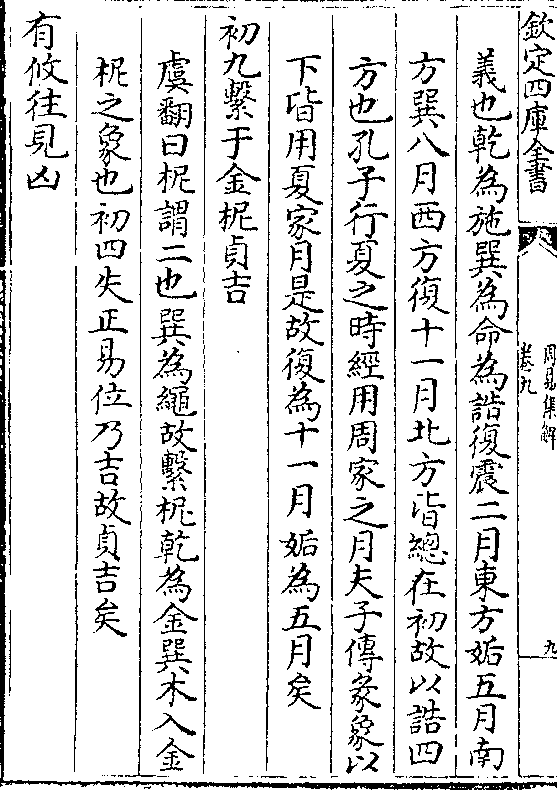 欽定四庫全書
周易集解
卷九
九
義也乾為施巽為命為誥復震二月東方姤五月南
方巽八月西方復十一月北方皆總在初故以誥四
方也孔子行夏之時經用周家之月夫子傳彖象以
下皆用夏家月是故復為十一月姤為五月矣
初九繫于金柅貞吉
虞翻曰柅謂二也巽為繩故繫柅乾為金巽木入金
柅之象也初四失正易位乃吉故貞吉矣
有攸往見凶